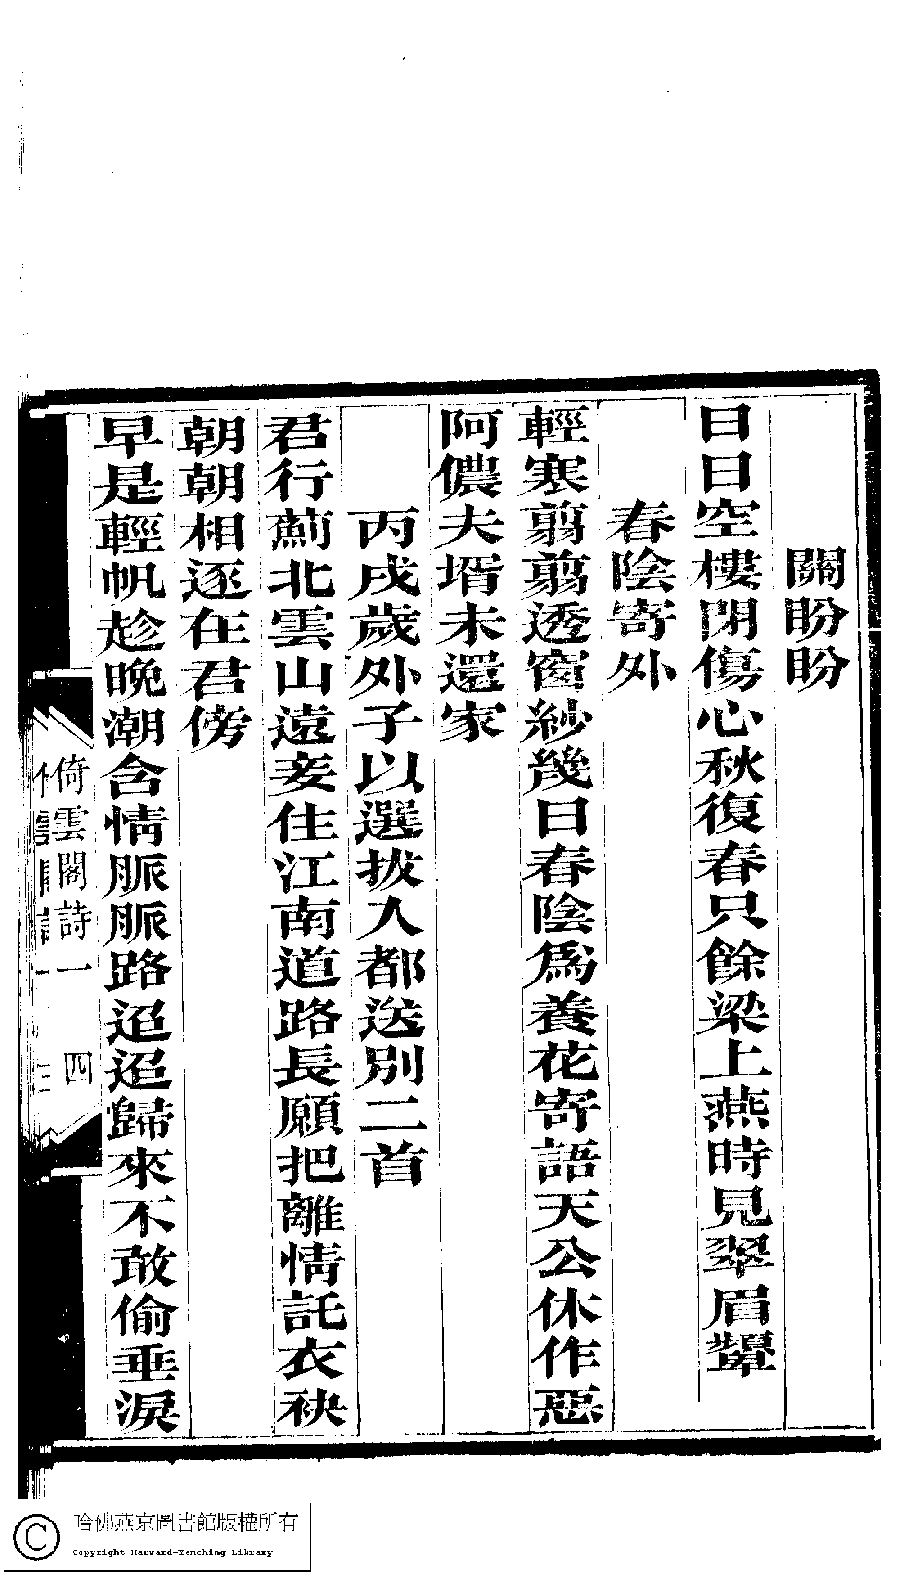 關盼盼
日日空樓閉傷心秋復春只餘梁上燕時見翠眉顰
春陰寄外
輕寒翦翦透窗紗幾日春陰爲養花寄語天公休作惡
阿儂夫壻未還家
丙戌歲外子以選拔入都送別二首
君行薊北雲山遠妾住江南道路長願把離情託衣袂
朝朝相逐在君傍
早是輕帆趁晚潮含情脈脈路迢迢歸來不敢偷垂淚
倚雲閣詩一 四
哈佛燕京圖書館版權所有
Copyright Harvard-Yenching Library